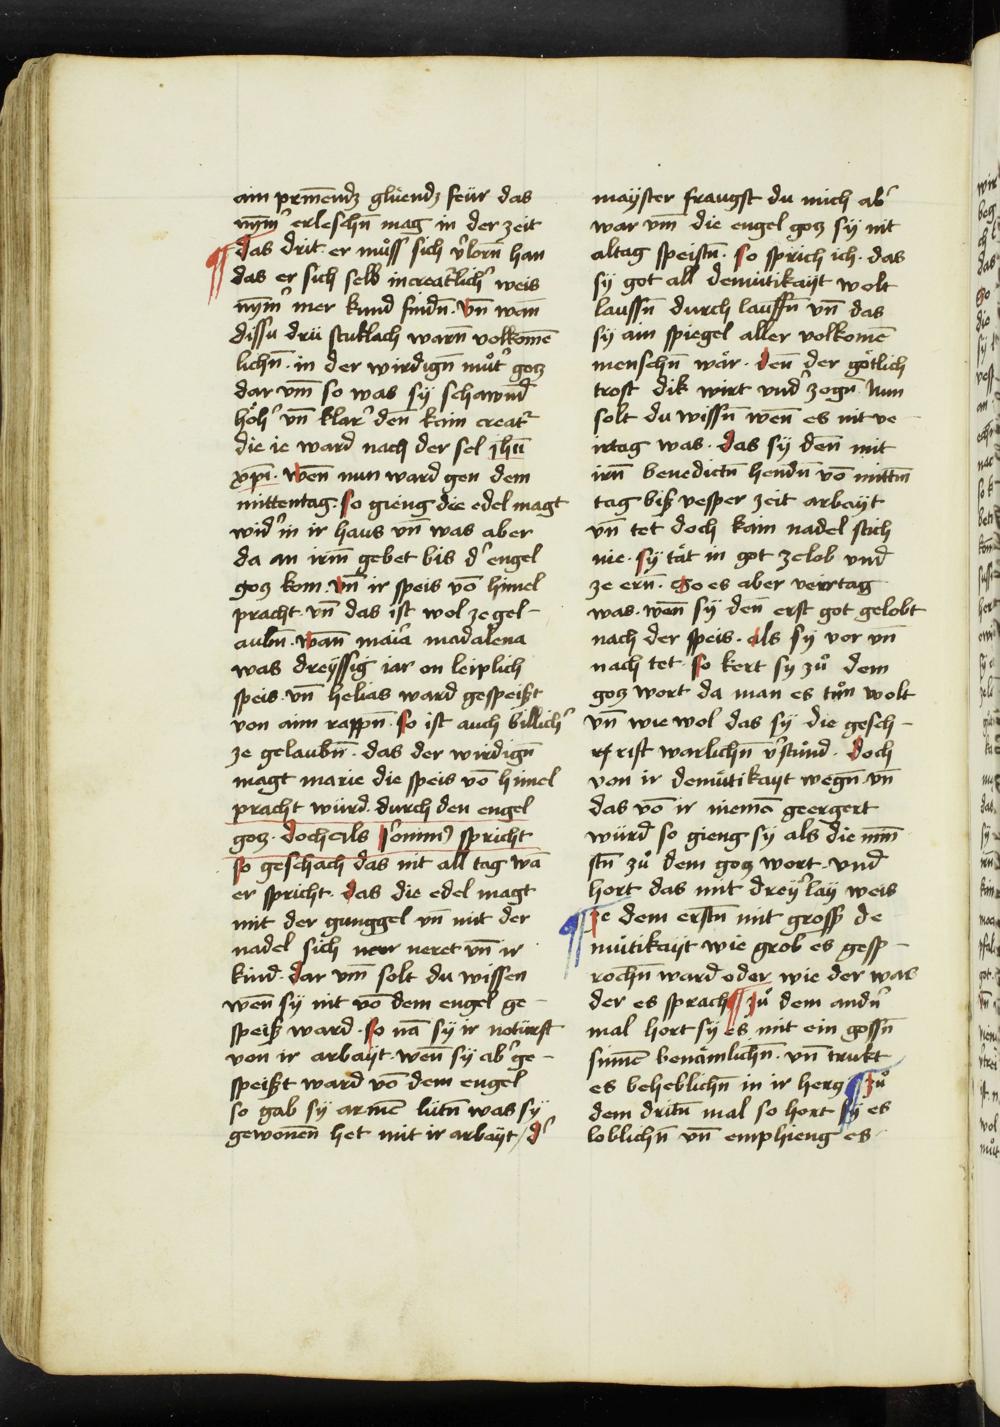 ain prinnendʒ glüendʒ feür das
nym̄er erleschn̄ mag in der zeit
¶ das drit · er müͦss sich v̓lorn̄ han
das er sich selb increatv̓lich̓ weis
nym̄er mer kund findn̄ · vn̄ wan̄
dissu drü stuklach warn̄ volkomē
lichn̄ · in der wirdign̄ muͦt̓ gotz
dar vm̄ so was sÿ schawnd̓
höh̓ vn̄ klar̓ den̄ kain creat̓
die ie ward nach der sel jhū
xp̄i · wen̄ nun ward gen dem
mittentag · so gieng die edel magt
wid̓ in ir haus vn̄ was aber
da an irm̄ gebet bis d̓ engel
gotz kom · vn̄ ir speis vō himel
pracht · vn̄ das ist wol ze gel-
aubn̄ · wan̄ mar̄ia madalena
was dreÿssig iar on leiplich
speis · vn̄ helias ward gespeißt
von aim rappn̄ · so ist auch billich̓
ze gelaubn̄ · das der wirdign̄
magt marie die speis vō himel
pracht würd · durch den engel
gotz · doch als sominꝰ spricht
so geschach das nit all tag wā
er spricht · das die edel magt
mit der gunggel vn̄ mit der
nadel sich neret vn̄ ir
kind · dar vm̄ solt du wissen
wen̄ sÿ nit vō dem engel ge-
speiß ward · so nā sÿ ir notürft
von ir arbaÿt · wen̄ sÿ ab̓ ge-
speißt ward vō dem engel
so gab sÿ armē lütn̄ was sÿ
gewonen̄ het mit ir arbaÿt / d̓
maÿster fraugst du mich ab̓
war vm̄ die engel gotz sÿ nit
altag speistn̄ · so sprich ich · das
sÿ got all demütikaÿt wolt
laussn̄ durch lauffn̄ vn̄ das
sÿ ain spiegel aller volkomē
menschn̄ wär · den̄ der götlich
trost dik wirt vnd̓ zogn̄ · Nun
solt du wissn̄ wen̄ es nit ve-
irtag was · das sÿ den̄ mit
irn̄ benedictn̄ hendn̄ vō mittm̄
tag biß vesper zeit arbaÿt
vn̄ tet doch kain nadel stich
nie · sÿ tät in got ze lob vnd̓
ze ern̄ · So es aber veirtag
was · wen̄ sÿ den̄ erst got gelobt
nach der speis · als sÿ vor vn̄
nach tet · so kert sy zuͦ dem
gotz wort da man es tuͦn wolt
vn̄ wie wol das sÿ die gesch-
rift warlichn̄ v̓stuͦnd · doch
von ir demütikaÿt wegn̄ · vn̄
das vō ir niemē geergert
würd so gieng sÿ als die min̄
stn̄ zuͦ dem gotz wort · vnd̓
hort das mit dreÿ̓lay weis
¶ ze dem erstn̄ mit gross̓ de
mütikaÿt wie grob es gesp-
rochn̄ ward oder wie der was
der es sprach ¶ zuͦ dem andn̓
mal hort sÿ es mit ein gossn̄
sinnē benämlichn̄ · vn̄ trukt
es beheblichn̄ in ir hertz ¶ zuͦ
dem dritn̄ mal so hort sÿ es
loblichn̄ vn̄ emphieng es ·